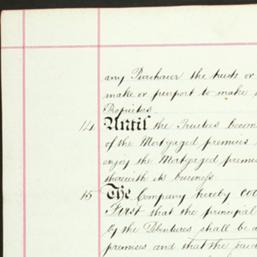 any Purchaser the trusts or
make or purport to make
Proprietor
14 Until the Trustees become
of the Mortgaged premises
enjoy the Mortgaged premises
therewith its business
15 The Company hereby cov
First that the principal
by the Debentures shall be a
premises and that the said